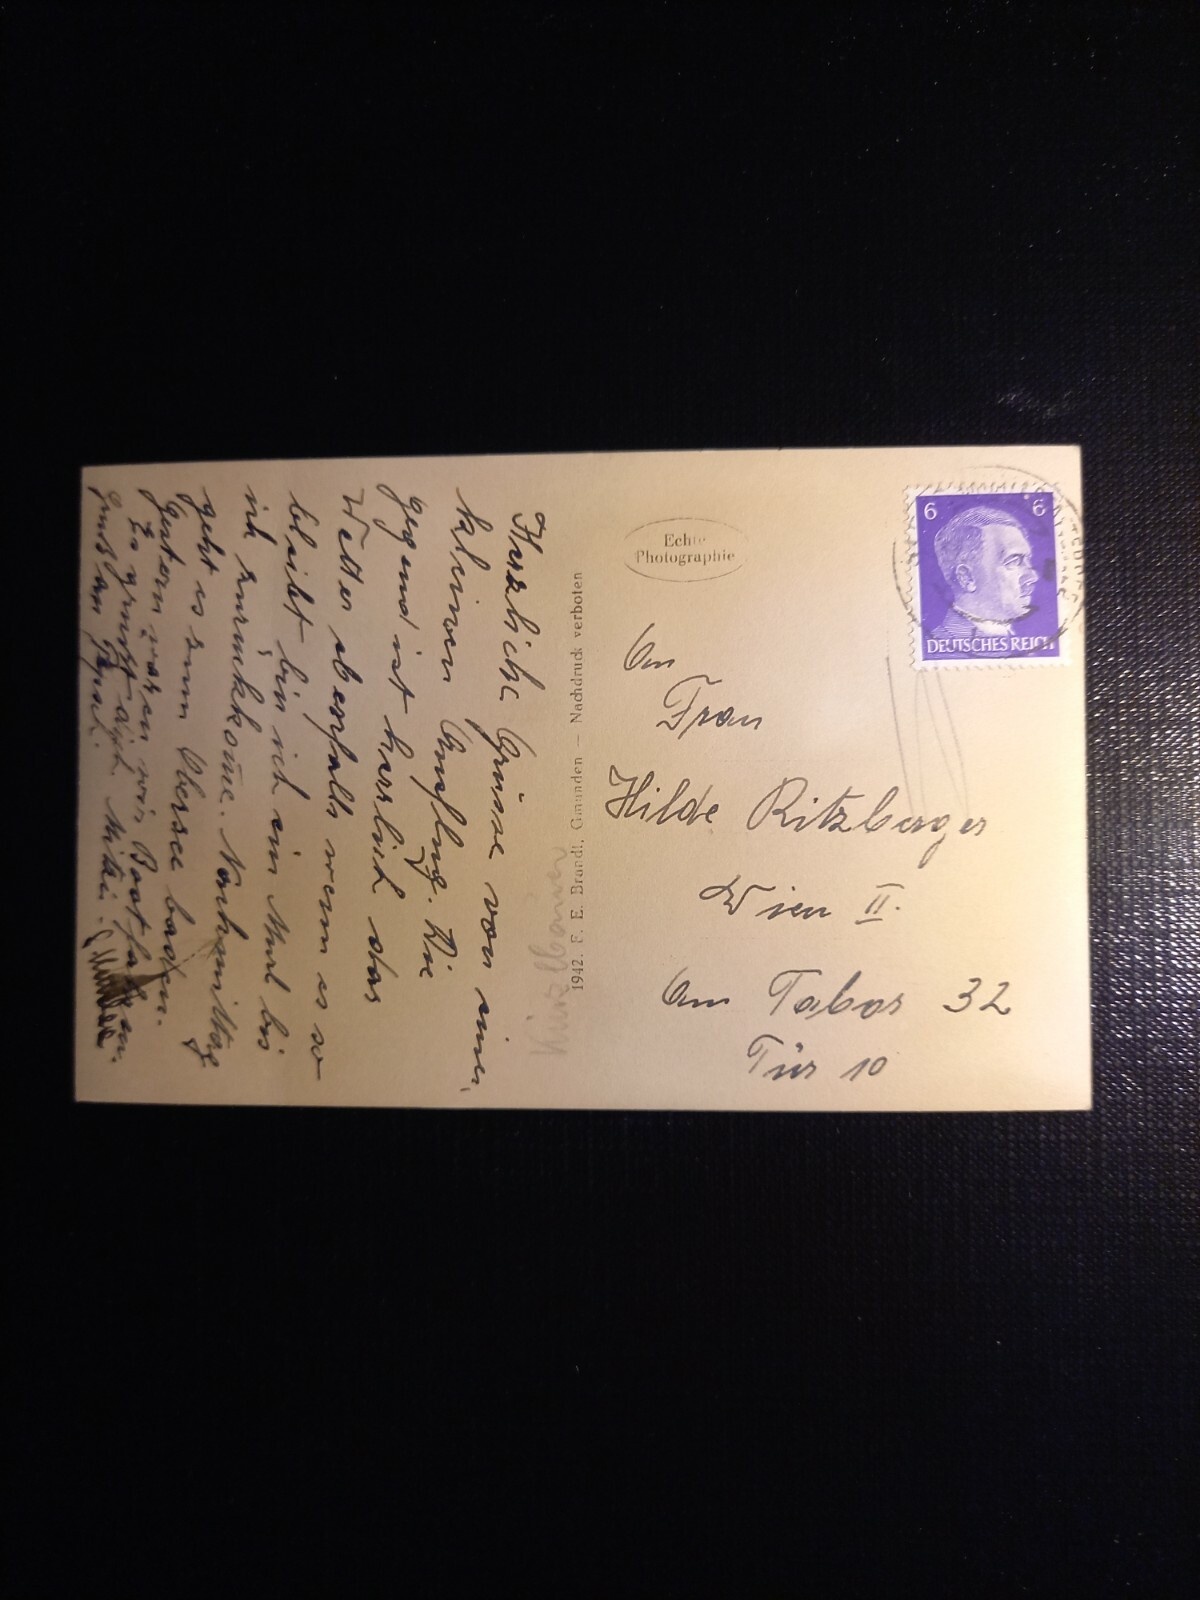 Herzliche Grüsse von einem
kleinen Ausflug. Die
gegend ist herrlich das
Wetter ebenfalls wenn es so
bleibt bin ich ein Murl bis
ich zurückkome. Nachmittag
geht es zum Obersee baden.
Gestern waren wir Boot fahren.
Es grüsst dich Mitzi.
Gruß an
Kienzlbauer
1942. F. E. Brandt, Gmunden — Nachdruck verboten
Echte
Photographie
6 6
DEUTSCHES REICH
An
Frau
Hilde Ritzberger
Wien II.
Am Tabor 32
Tür 10